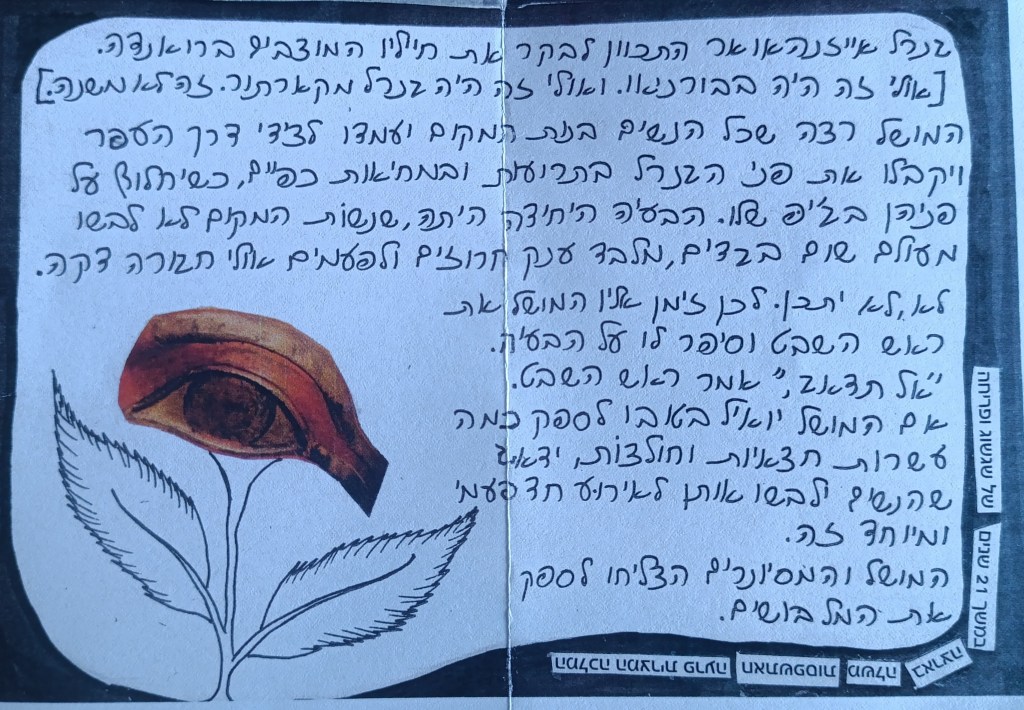 גנרל אייזנהאואר התכוון לבקר את חייליו המוצבים ברואנדה.
[אולי זה היה בבורניאו. ואולי זה היה גנרל מקארתור. זה לא משנה.]
המושל רצה שכל הנשים בנות המקום יעמדו לצידי דרך העפר
ויקבלו את פני הגנרל בתרועות ובמחיאות כפיים, כשיחלוף על
פניהן בג'יפ שלו. הבעיה היחידה היתה, שנשות המקום לא לבשו
מעולם שום בגדים, מלבד ענק חרוזים ולפעמים אולי חגורה דקה.
לא, לא יתכן. לכן זימן אליו המושל את
ראש השבט וסיפר לו על הבעיה.
"אל תדאג," אמר ראש השבט.
אם המושל יואיל בטובו לספק כמה
עשרות חצאיות וחולצות, ידאג
שהנשים ילבשו אותן לאירוע חד פעמי
ומיוחד זה.
המושל והמסיונרים הצליחו לספק
את המלבושים.
המלכה המצרית פרעה
חאתשפסות
משלה
בארצה
במשך 21 שנים
של שגשוג ופריחה